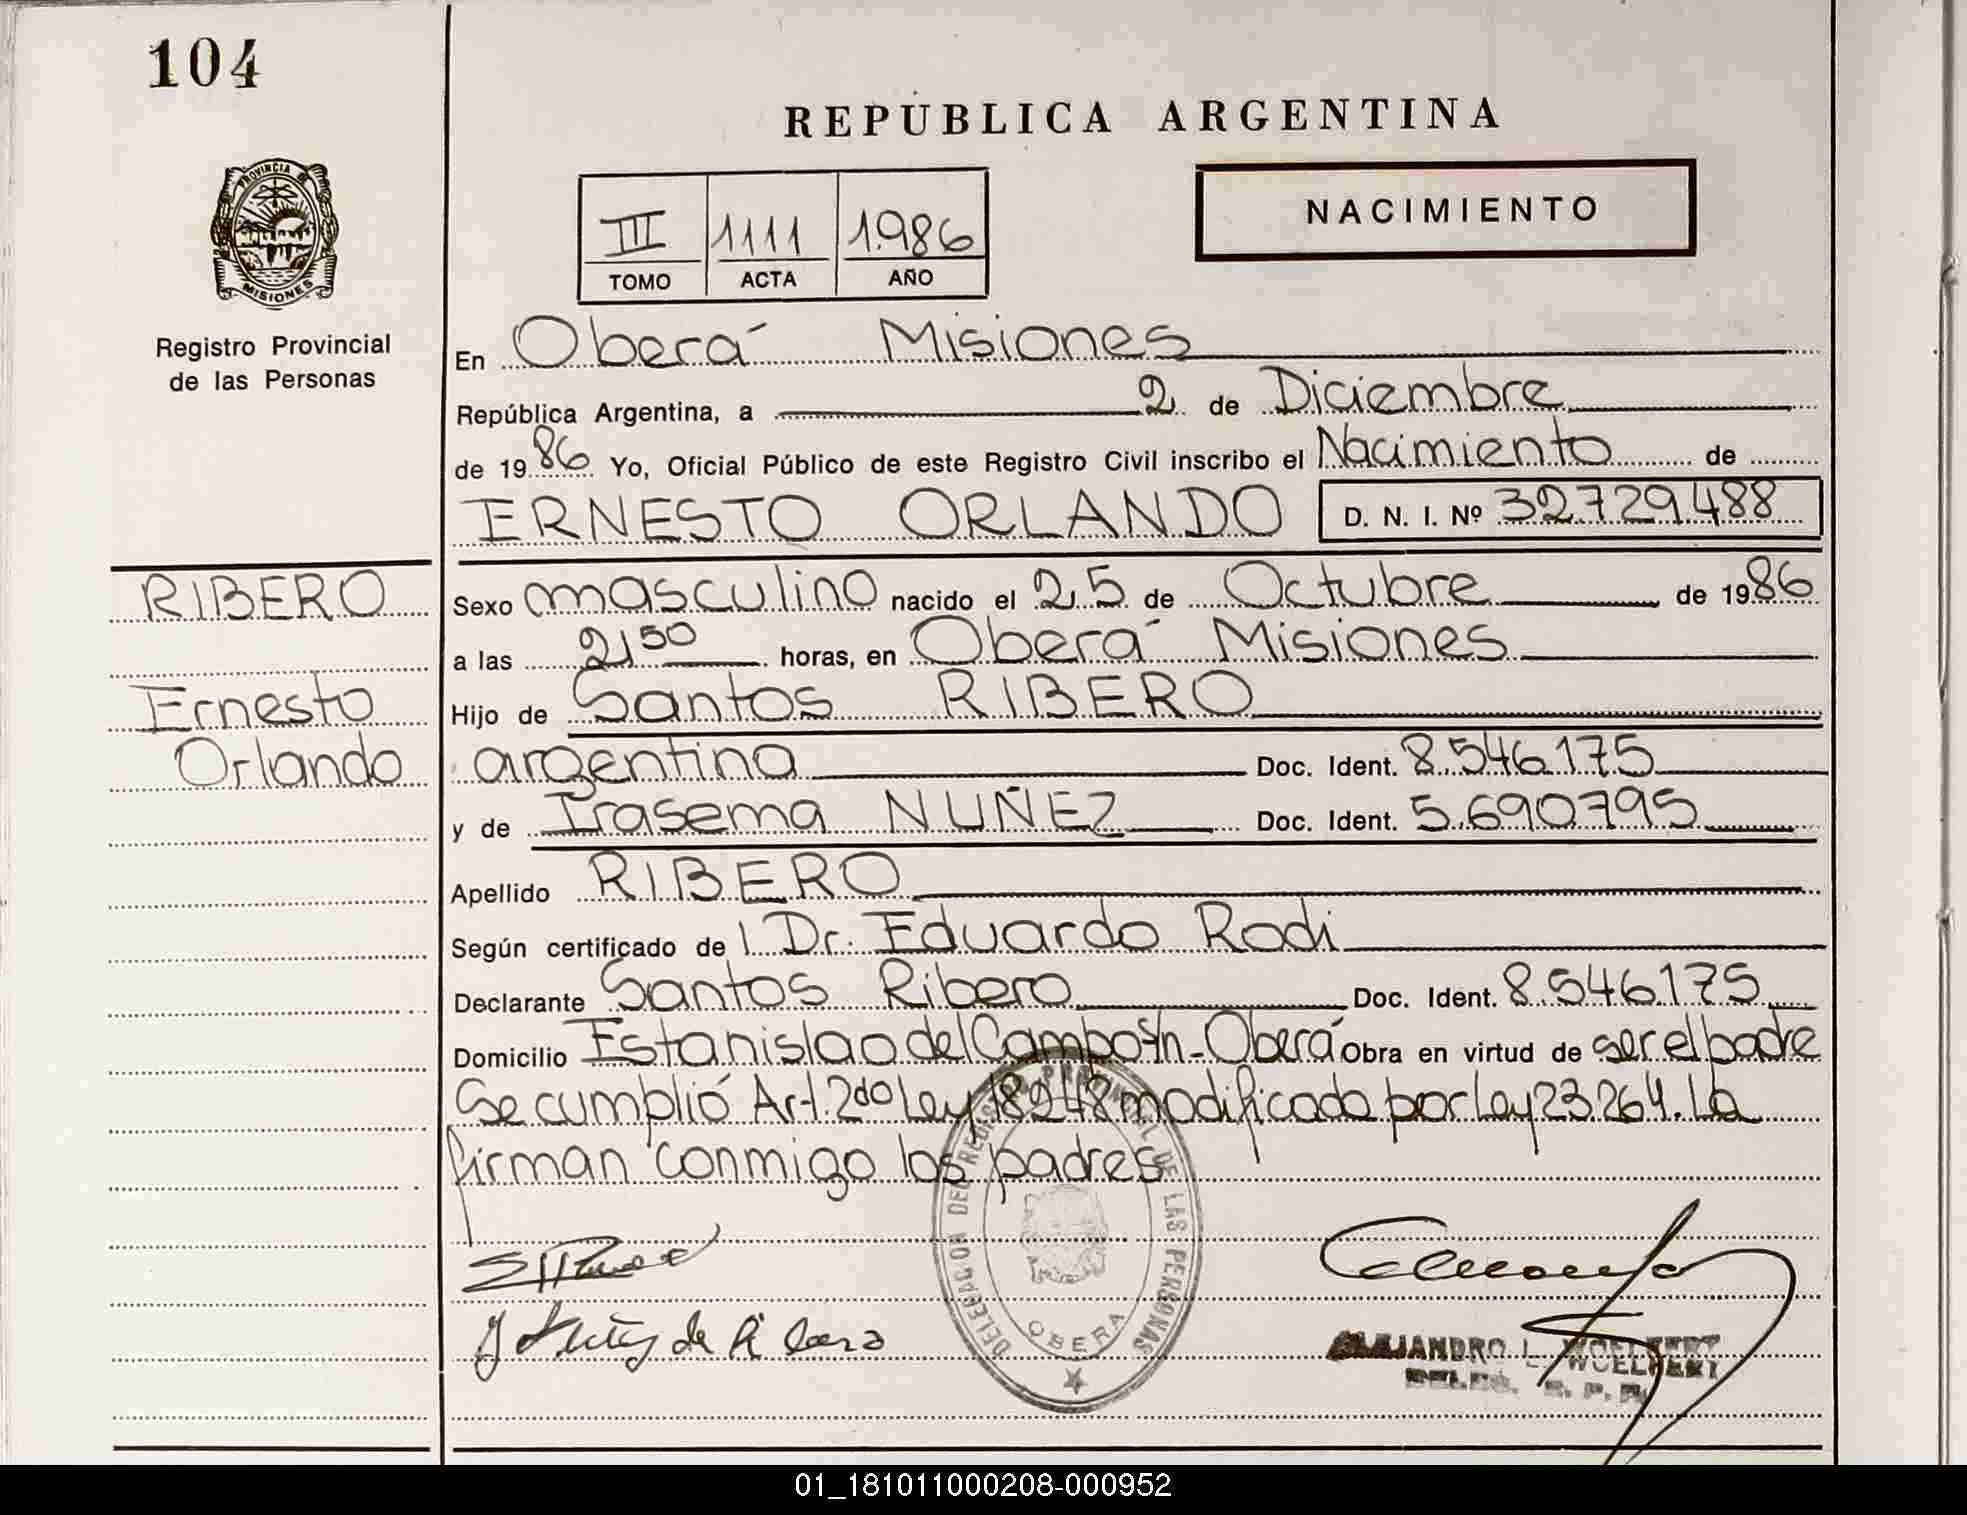 104
REPUBLICA ARGENTINA
PROVINCIA DE
MISIONES
Registro Provincial
de las Personas
III 1111 1986
TOMO ACTA AÑO
NACIMIENTO
En Oberá Misiones
República Argentina, a 2 de Diciembre
de 1986 Yo, Oficial Público de este Registro Civil inscribo el Nacimiento de
ERNESTO ORLANDO D. N. I. Nº 32.729.488
RIBERO
Ernesto
Orlando
Sexo masculino nacido el 25 de Octubre de 1986
a las 2,50 horas, en Oberá Misiones
Hijo de Santos RIBERO
argentina Doc. Ident. 8.546.175
y de Irasema NUÑEZ Doc. Ident. 5.690.795
Apellido RIBERO
Según certificado de l Dr. Eduardo Rodi
Declarante Santos Ribero Doc. Ident. 8.546.175
Domicilio Estanislao del Campo s/n - Oberá Obra en virtud de ser el padre
Se cumplió Art. 2do Ley 18248 modificada por Ley 23.264. La
firman conmigo los padres
DELEGACION DEL REGISTRO PROVINCIAL DE LAS PERSONAS
OBERA
de
ALEJANDRO L. WOELFERT
01_181011000208-000952